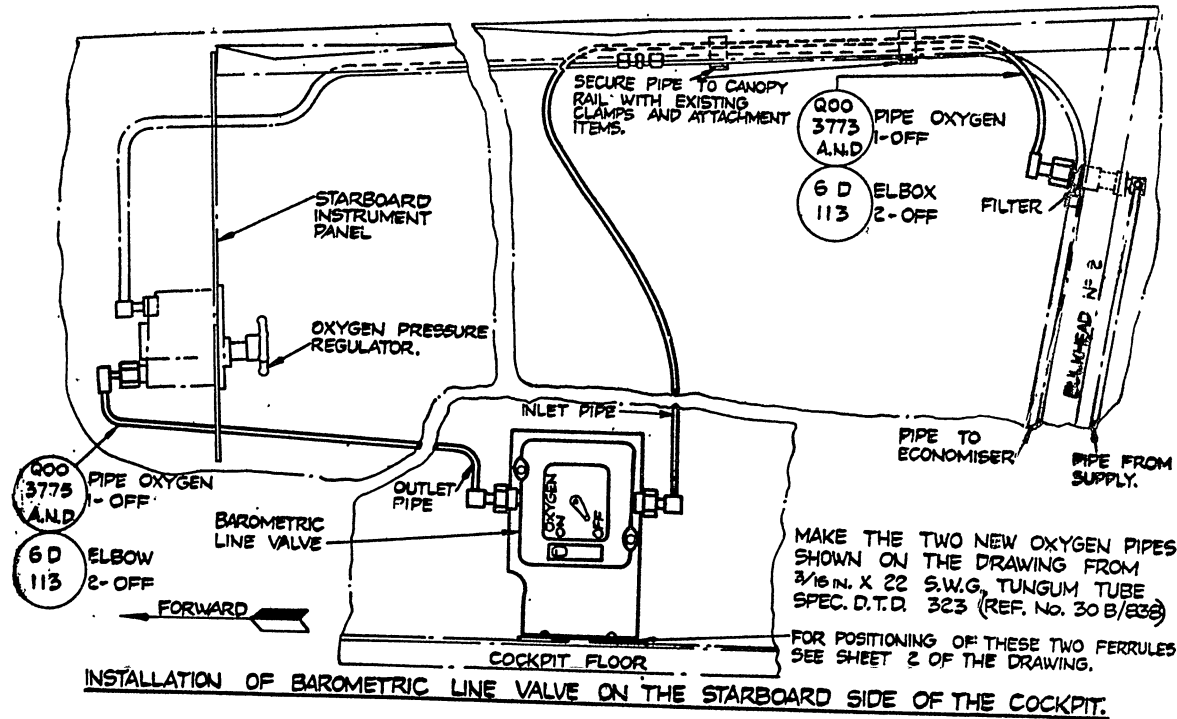 SECURE PIPE TO CANOPY
RAIL WITH EXISTING
CLAMPS AND ATTACHMENT
ITEMS.
Q00
3773
A.N.D
PIPE OXYGEN
1-OFF
6 D
113
ELBOX
2-OFF
FILTER
STARBOARD
INSTRUMENT
PANEL
BULKHEAD Nº 2
OXYGEN PRESSURE
REGULATOR.
INLET PIPE
PIPE TO
ECONOMISER
PIPE FROM
SUPPLY.
Q00
3775
A.N.D
PIPE OXYGEN
1-OFF
OUTLET
PIPE
OXYGEN
ON
OFF
BAROMETRIC
LINE VALVE
6 D
113
ELBOW
2-OFF
MAKE THE TWO NEW OXYGEN PIPES
SHOWN ON THE DRAWING FROM
3/16 IN. X 22 S.W.G., TUNGUM TUBE
SPEC. D.T.D. 323 (REF. No. 30 B/838)
FORWARD
FOR POSITIONING OF THESE TWO FERRULES
SEE SHEET 2 OF THE DRAWING.
COCKPIT FLOOR
INSTALLATION OF BAROMETRIC LINE VALVE ON THE STARBOARD SIDE OF THE COCKPIT.